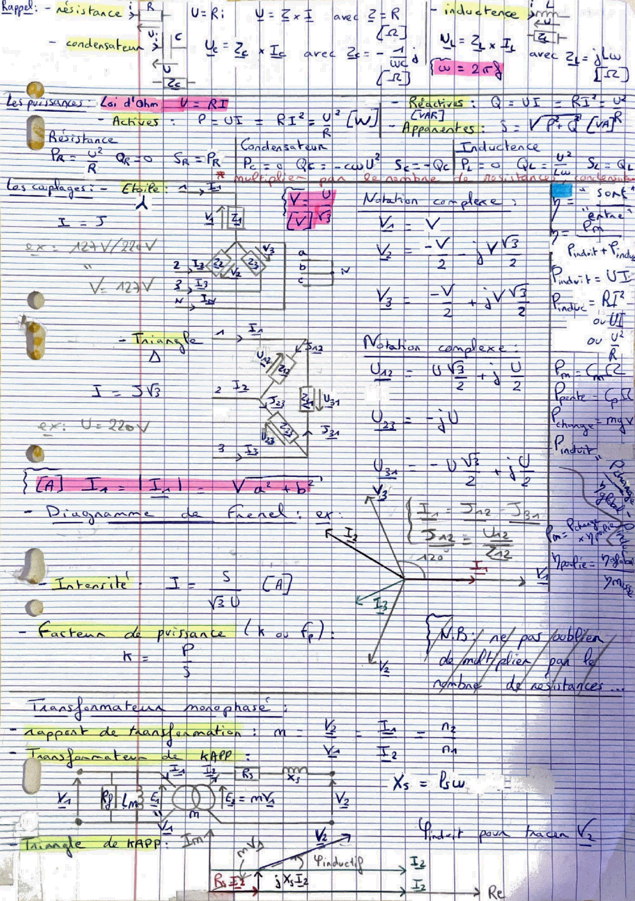 Rappel: - résistance
R
U = Ri
U = Z × I avec Z = R [Ω]
- condensateur
C
Uc = Zc × Ic avec Zc = -1/ωC j [Ω]
- inductence
L
UL = ZL × IL avec ZL = jLω [Ω]
ω = 2πf
Les puissances: Loi d'Ohm U = RI
- Actives: P = UI = RI² = U²/R [W]
- Réactives: Q = UI = RI² = U²/R [VAR]
- Apparentes: S = √P² + Q² [VA]
Résistance
PR = U²/R QR = 0 SR = PR
Condensateur
Pc = 0 Qc = -cωU² Sc = -Qc
Inductence
PL = 0 QL = U²/Lω SL = QL
* multiplier par le nombre de resistances
Les couplages: - Etoile
I = J
ex: 127V/220V
V = 127V
V = U/√3 [V]
Notation complexe:
V1 = V
V2 = -V/2 - jV√3/2
V3 = -V/2 + jV√3/2
- Triangle Δ
I = J√3
ex: U = 220V
Notation complexe:
U12 = U√3/2 + j U/2
U23 = -jU
U31 = -U√3/2 + j U/2
[A] I1 = |I1| = √a² + b²
- Diagramme de Frenel: ex:
I1 = J12 - J31
J12 = U12/Z12
120°
I2
I1
I3
V1
V2
V3
- Intensité: I = S/√3 U [A]
- Facteur de puissance (k ou fp):
k = P/S
N.B: ne pas oublier
de multiplier par le
nombre de resistances ...
"sort"
"entre"
Pinduit = UI
Pinduc = RI²
ou UI
ou U²/R
Pm = CmΩ
Pperte = CpΩ
Pcharge = mgv
Transformateur monophasé:
- rapport de transformation: m = V2/V1 = I1/I2 = n2/n1
- Transformateur de KAPP:
V1
Rf
Lm
E1
m
E2 = mV1
Rs
Xs
V2
Xs = lsω
- Triangle de KAPP:
Im
mV1
V2
φinductif
I2
RsI2
jXsI2
I2
Re
φinduit pour tracer V2